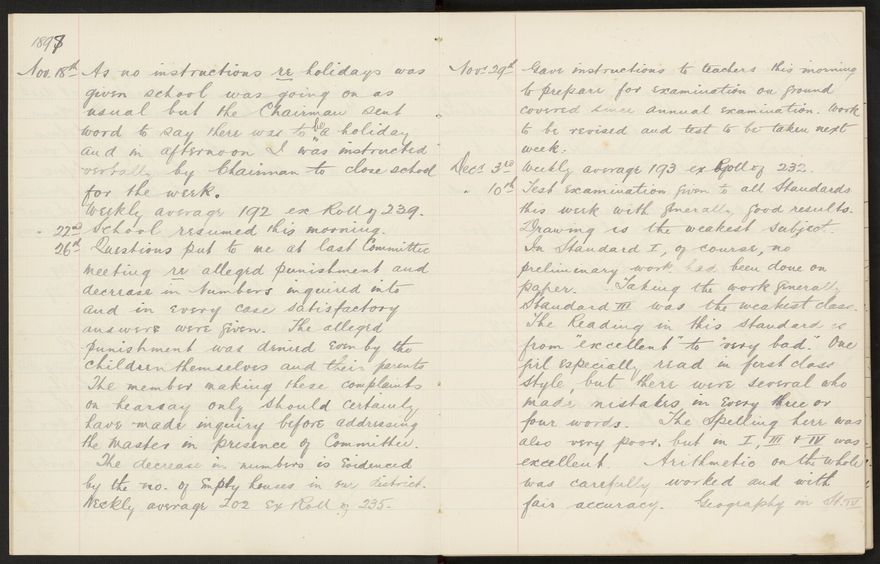 1897
Nov. 18th As no instructions re holidays was
given school was going on as
usual but the Chairman sent
word to say there was to be a holiday
and in afternoon I was instructed
verbally by Chairman to close school
for the week.
Weekly average 192 ex Roll of 239.
" 22nd School resumed this morning.
26th Questions put to me at last Committee
meeting re alleged punishment and
decrease in numbers inquired into
and in every case satisfactory
answers were given. The alleged
punishment was denied even by the
children themselves and their parents
The member making these complaints
on hearsay only should certainly
have made inquiry before addressing
the Master in presence of Committee.
The decrease in numbers is evidenced
by the no. of empty houses in our district.
Weekly average 202 ex Roll of 235.
Nov. 29th Gave instructions to teachers this morning
to prepare for examination on ground
covered since annual examination. Work
to be revised and test to be taken next
week.
Decr 3rd Weekly average 193 ex Roll of 232.
" 10th Test Examination given to all Standards
this week with generally good results.
Drawing is the weakest subject.
In Standard I, of course, no
preliminary work had been done on
paper. Taking the work generally
Standard III was the weakest class.
The Reading in this Standard is
from "excellent" to "very bad." One
girl especially read in first class
style, but there were several who
made mistakes in every three or
four words. The Spelling here was
also very poor. but in I, III & IV was
excellent. Arithmetic on the whole
was carefully worked and with
fair accuracy. Geography in St. IV